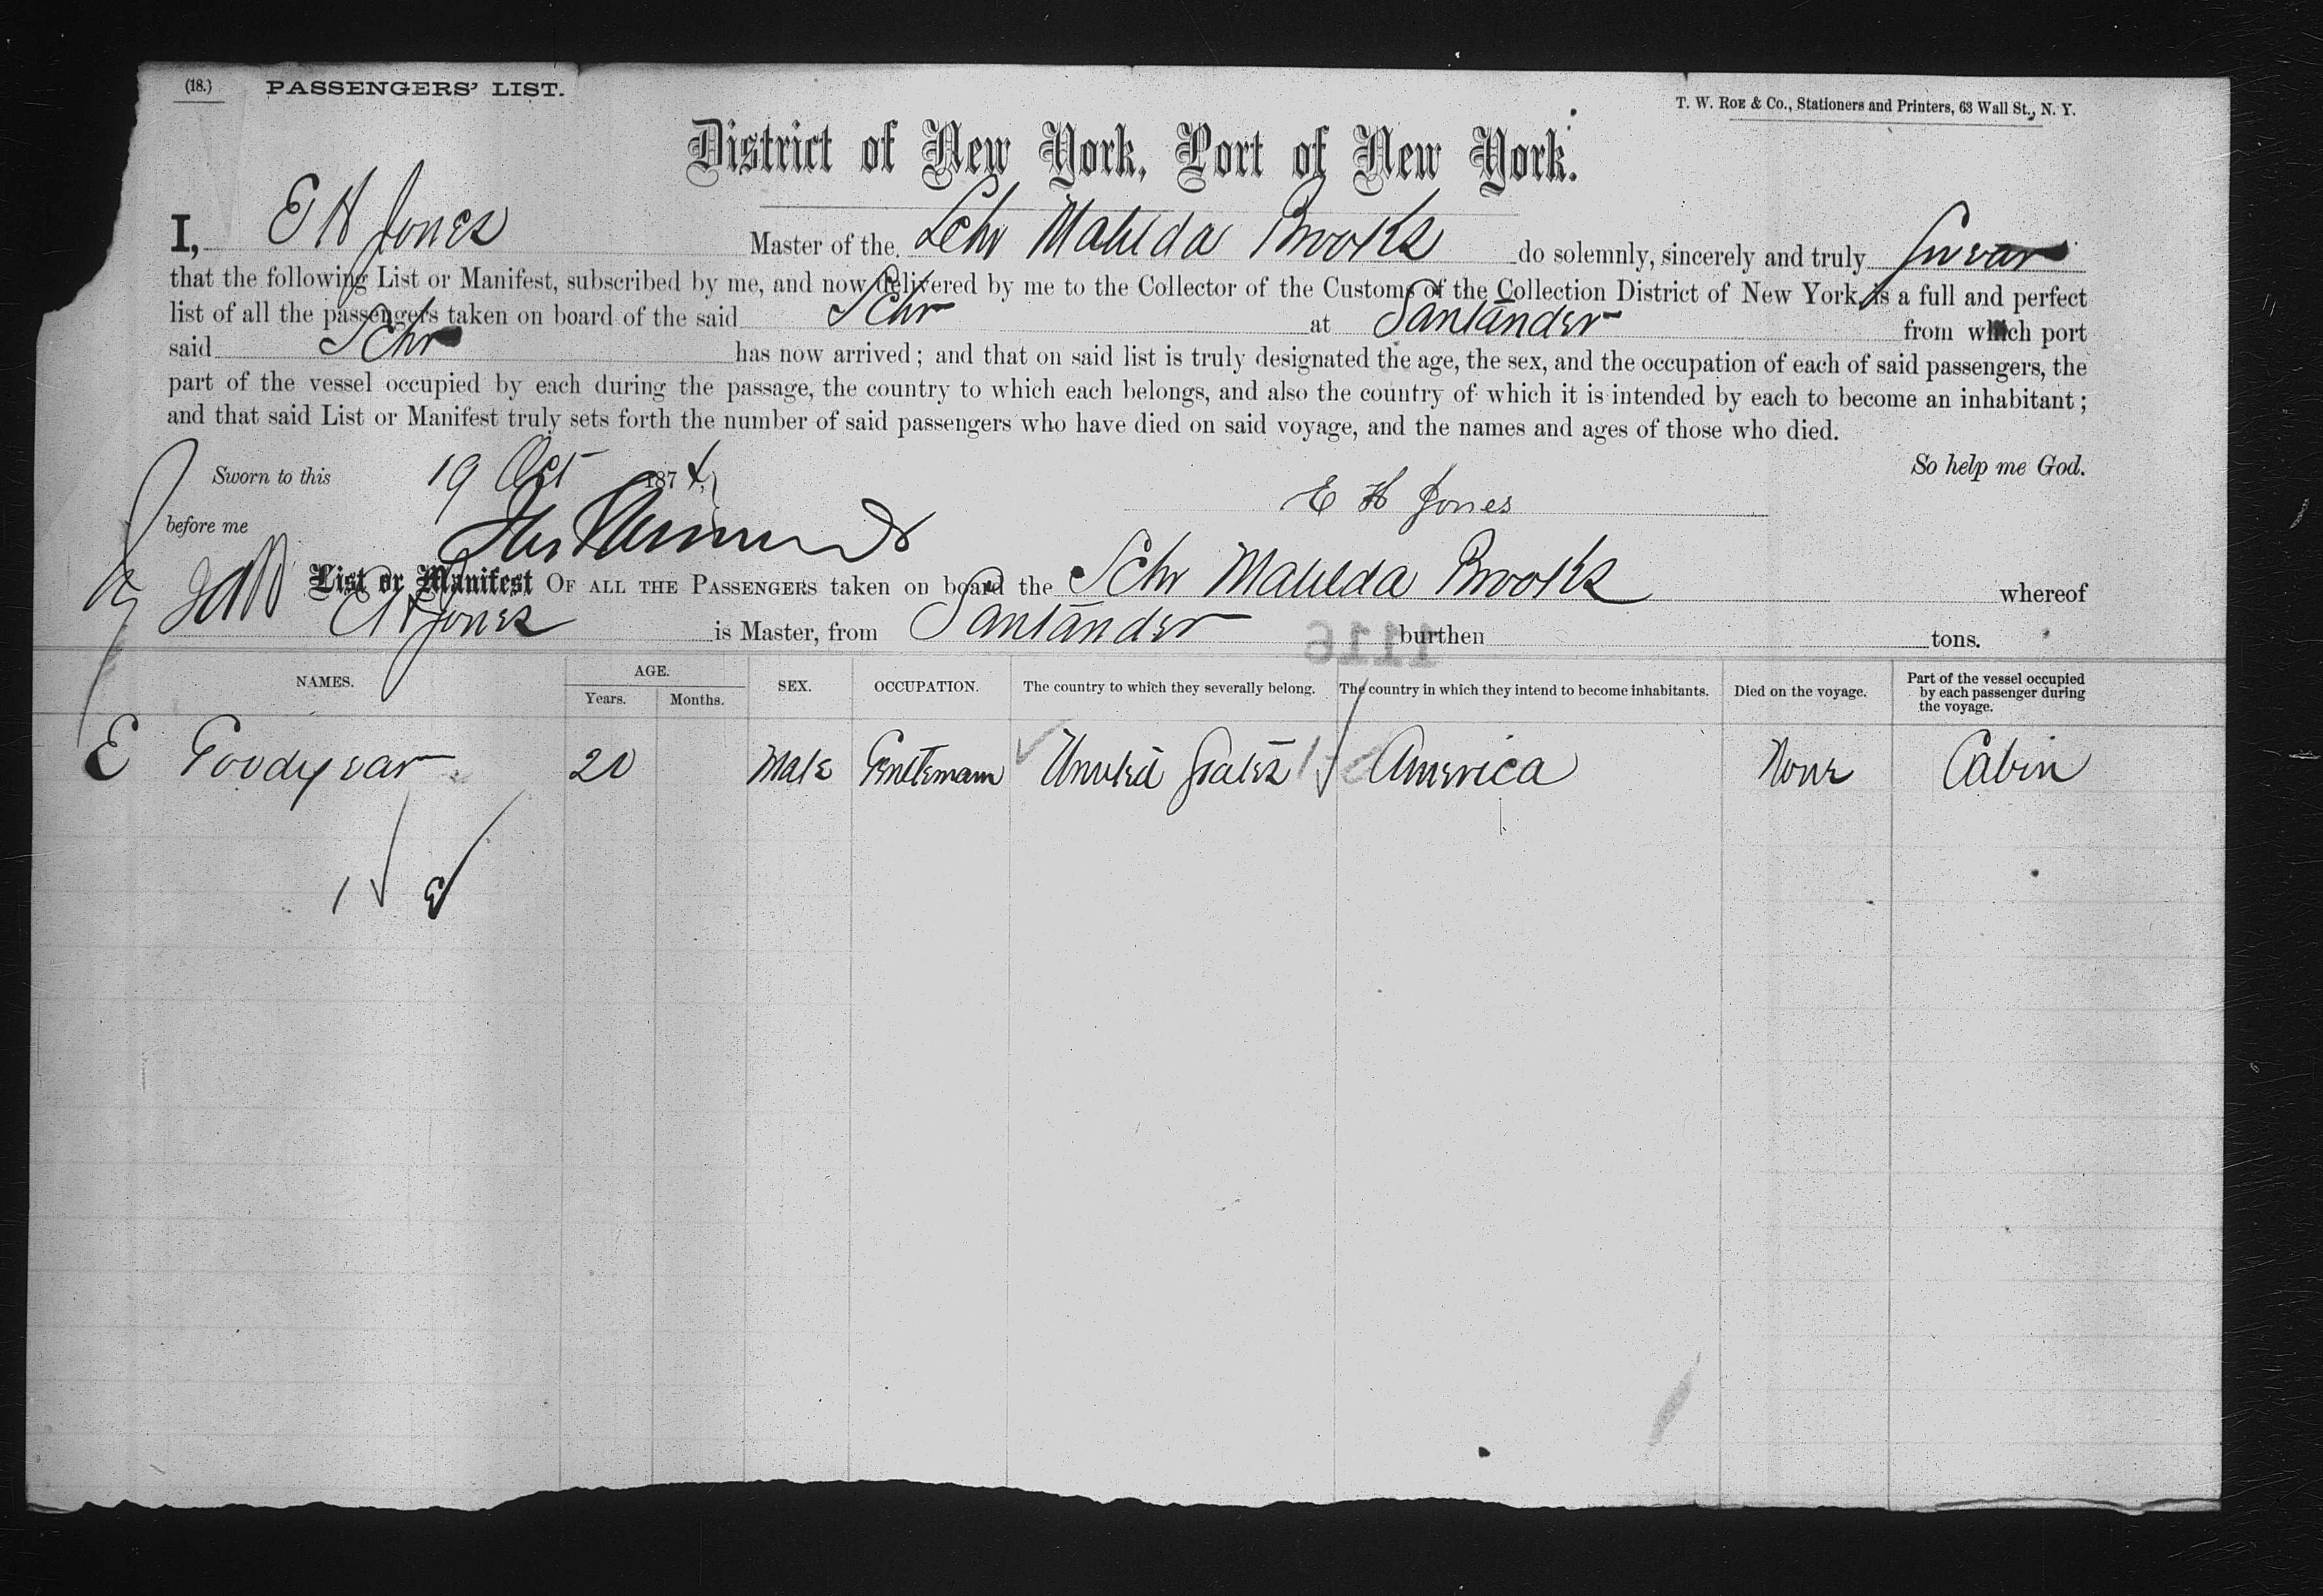 (18.) PASSENGERS' LIST.
T. W. ROE & Co., Stationers and Printers, 63 Wall St., N. Y.
District of New York, Port of New York.
I, E H Jones Master of the Schr Matilda Brooks do solemnly, sincerely and truly swear
that the following List or Manifest, subscribed by me, and now delivered by me to the Collector of the Customs of the Collection District of New York, is a full and perfect
list of all the passengers taken on board of the said Schr at Santander from which port
said Schr has now arrived; and that on said list is truly designated the age, the sex, and the occupation of each of said passengers, the
part of the vessel occupied by each during the passage, the country to which each belongs, and also the country of which it is intended by each to become an inhabitant;
and that said List or Manifest truly sets forth the number of said passengers who have died on said voyage, and the names and ages of those who died.
Sworn to this 19 Oct 1874, So help me God.
before me E H Jones
List or Manifest OF ALL THE PASSENGERS taken on board the Schr Matilda Brooks whereof
E H Jones is Master, from Santander burthen tons.
1116
NAMES. AGE. Years. Months. SEX. OCCUPATION. The country to which they severally belong. The country in which they intend to become inhabitants. Died on the voyage. Part of the vessel occupied by each passenger during the voyage.
E Goodyear 20 Male Gentleman United States America None Cabin